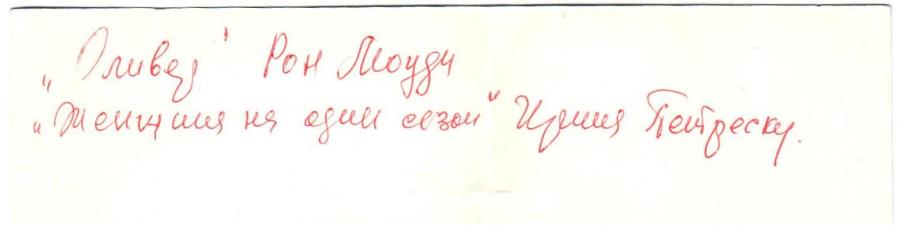 „Оливер" Рон Моуди
„Женщина на один сезон" Ирина Петреску.